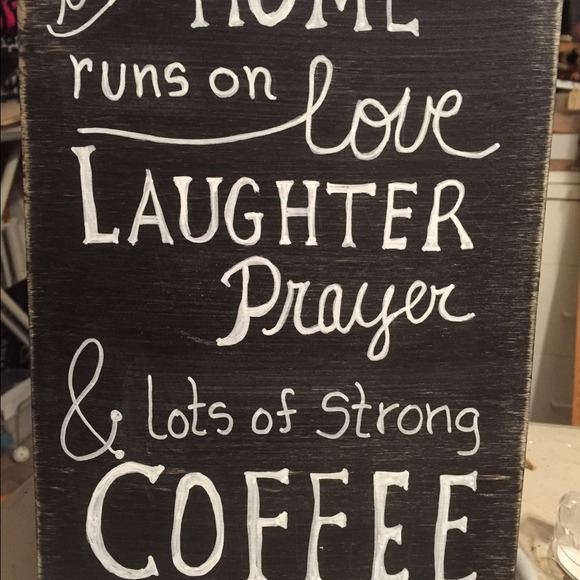 HOME
runs on love
LAUGHTER
Prayer
& lots of strong
COFFEE